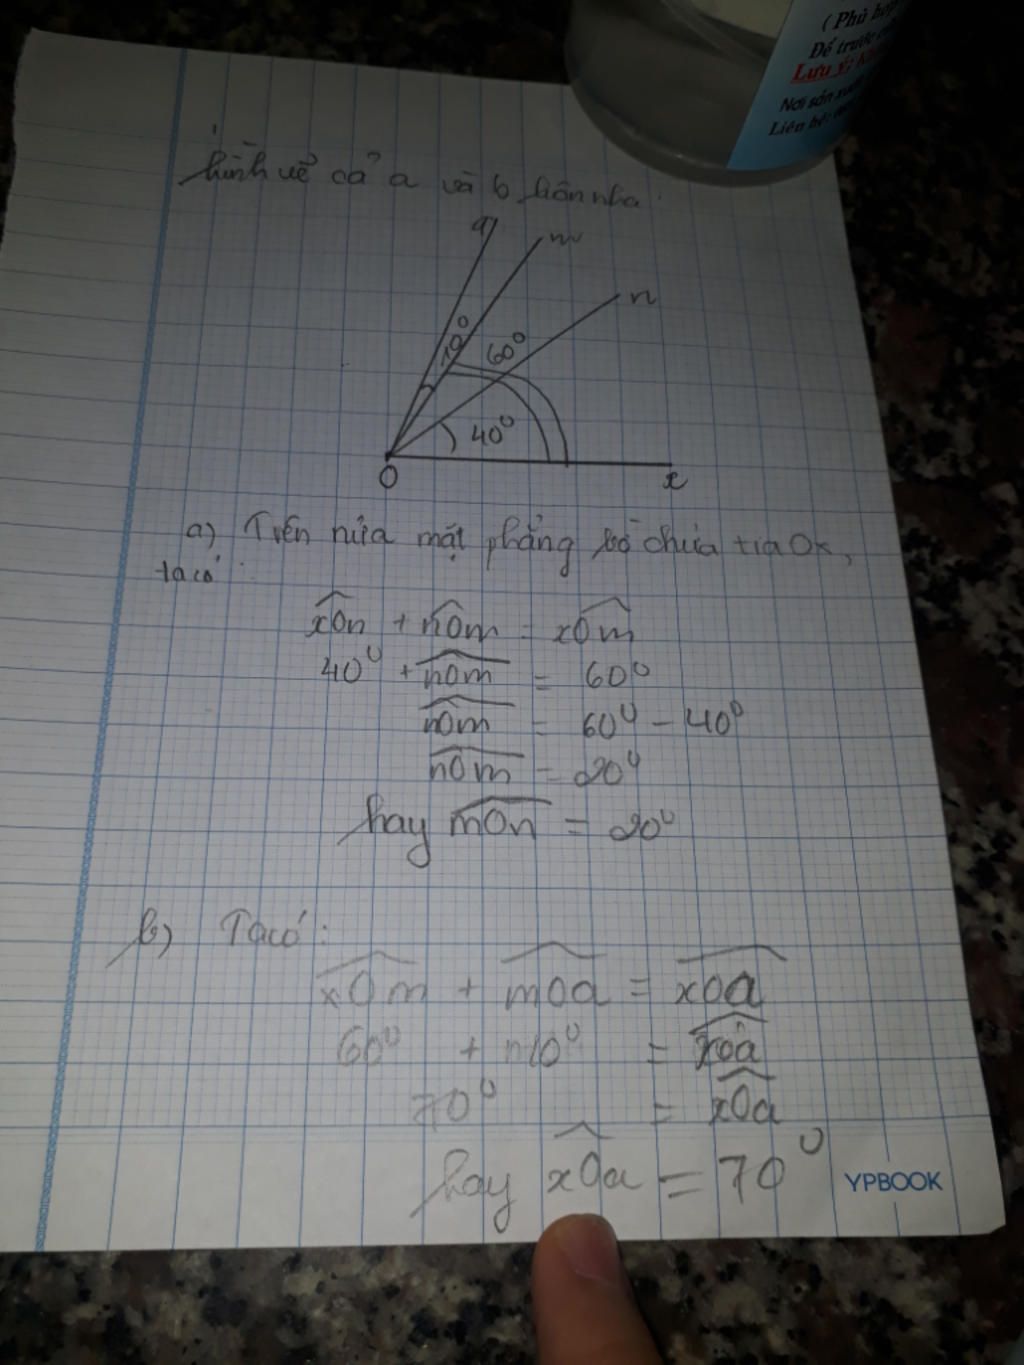 (Phù hợp
Để trước
Lưu ý:
Nơi sản xuất
Liên hệ:
hình vẽ cả a và b luôn nha.
a
m
n
10⁰
60⁰
40⁰
O
x
a) Trên nửa mặt phẳng bờ chứa tia Ox,
ta có:
xOn + nOm = xOm
40⁰ + nOm = 60⁰
nOm = 60⁰ - 40⁰
nOm = 20⁰
hay mOn = 20⁰
b) Ta có:
xOm + mOa = xOa
60⁰ + 10⁰ = xOa
70⁰ = xOa
hay xOa = 70⁰
YPBOOK